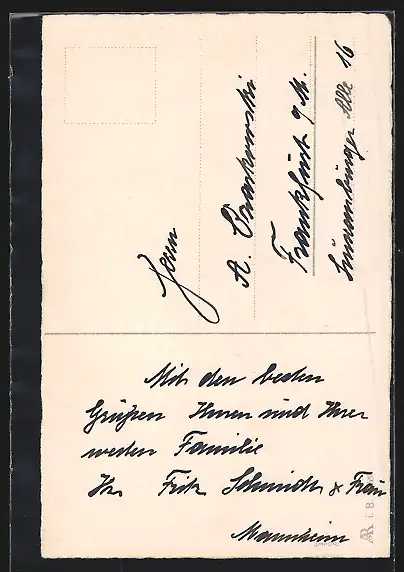 Herrn
A.
Frankfurt a/M.
Allee 16
Mit den besten
Grüßen Ihnen und Ihrer
werten Familie
Ihr Fritz Schmidt & Frau
Mannheim
AR i. B.